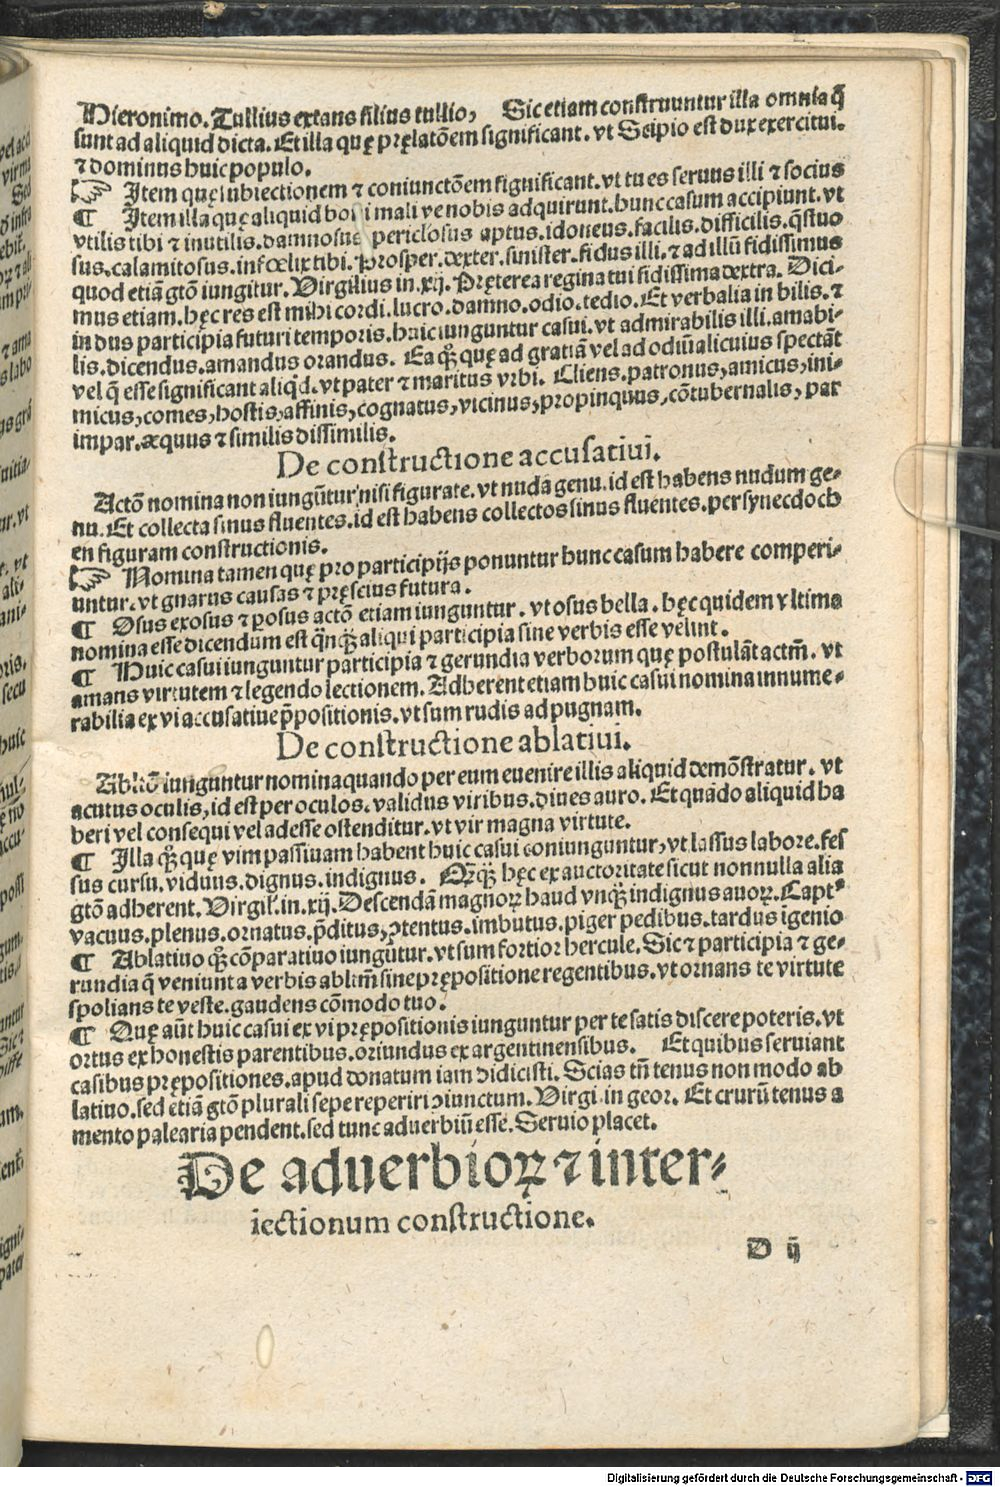 Hieronimo. Tullius extans filius tullio, Sic etiam construuntur illa omnia q̃
sunt ad aliquid dicta. Et illa quę pręlatõem significant. vt Scipio est dux exercitui.
⁊ dominus huic populo.
☞ Item quę subiectionem ⁊ coniunctõem significant. vt tu es seruus illi ⁊ socius
¶ Item illa quę aliquid boni mali ve nobis adquirunt. hunc casum accipiunt. vt
vtilis tibi ⁊ inutilis. damnosus periclosus aptus. idoneus. facilis. difficilis. q̃stuo
sus. calamitosus. infœlix tibi. Prosper. dexter. sinister. fidus illi. ⁊ ad illũ fidissimus
quod etiã gtõ iungitur. Virgilius in. xij. Pręterea regina tui fidissima dextra. Dici-
mus etiam. hęc res est mihi cordi. lucro. damno. odio. tedio. Et verbalia in bilis. ⁊
in dus participia futuri temporis. huic iunguntur casui. vt admirabilis illi. amabi-
lis. dicendus. amandus orandus. Ea qꝫ quę ad gratiã vel ad odiũ alicuius spectãt
vel q̃ esse significant aliq̇d. vt pater ⁊ maritus vrbi. Cliens. patronus, amicus, ini-
micus, comes, hostis, affinis, cognatus, vicinus, propinquus, cõtubernalis, par
impar. æquus ⁊ similis dissimilis.
De constructione accusatiui.
Actõ nomina non iungũtur nisi figurate. vt nuda genu. id est habens nudum ge-
nu. Et collecta sinus fluentes. id est habens collectos sinus fluentes. per synecdoch
en figuram constructionis.
☞ Nomina tamen quę pro participijs ponuntur hunc casum habere comperi-
untur. vt gnarus causas ⁊ pręscius futura.
¶ Osus exosus ⁊ perosus actõ etiam iunguntur. vt osus bella. hęc quidem vltima
nomina esse dicendum est q̃nqꝫ aliqui participia sine verbis esse velint.
¶ Huic casui iunguntur participia ⁊ gerundia verborum quę postulãt actm̃. vt
amans virtutem ⁊ legendo lectionem. Adherent etiam huic casui nomina innume-
rabilia ex vi accusatiue p̃positionis. vt sum rudis ad pugnam.
De constructione ablatiui.
Abltõ iunguntur nomina quando per eum euenire illis aliquid demõstratur. vt
acutus oculis, id est per oculos. validus viribus. diues auro. Et quãdo aliquid ha
beri vel consequi vel adesse ostenditur. vt vir magna virtute.
¶ Illa qꝫ quę vim passiuam habent huic casui coniunguntur, vt lassus labore. fes
sus cursu. viduus. dignus. indignus. Q̃qꝫ hęc ex auctoritate sicut nonnulla alia
gtõ adherent. Virgil'. in. xij. Descendã magnoꝝ haud vnqꝫ indignus auoꝝ. Capt⁹
vacuus. plenus. ornatus. p̃ditus, ꝯtentus. imbutus. piger pedibus. tardus igenio
¶ Ablatiuo qꝫ cõparatiuo iungũtur. vt sum fortior hercule. Sic ⁊ participia ⁊ ge-
rundia q̃ veniunt a verbis abltm̃ sine prępositione regentibus. vt ornans te virtute
spolians te veste. gaudens cõmodo tuo.
¶ Quę aũt huic casui ex vi prępositionis iunguntur per te satis discere poteris. vt
ortus ex honestis parentibus. oriundus ex argentinensibus. Et quibus seruiant
casibus prępositiones. apud donatum iam didicisti. Scias tñ tenus non modo ab
latiuo. sed etiã gtõ plurali sepe reperiri ꝯiunctum. Virgi. in geor. Et crurũ tenus a
mento palearia pendent. sed tunc aduerbiũ esse. Seruio placet.
De aduerbioꝝ ⁊ inter-
iectionum constructione.
D ij
Digitalisierung gefördert durch die Deutsche Forschungsgemeinschaft - DFG